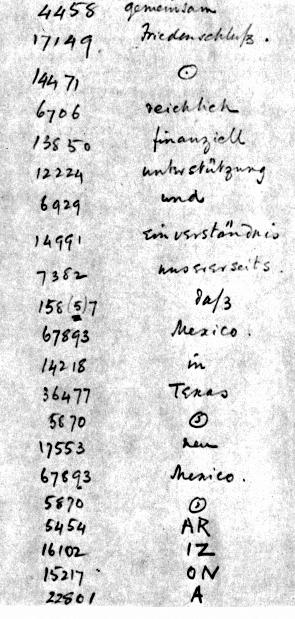 4458 gemeinsam
17149 Friedenschluß.
14471 ⊙
6706 reichlich
13850 finanziell
12224 unterstützung
6929 und
14991 Einverständnis
7382 unsererseits.
158(5)7 daß
67893 Mexico.
14218 in
36477 Texas
5870 ⊙
17553 neu
67893 Mexico.
5870 ⊙
5454 AR
16102 IZ
15217 ON
22801 A